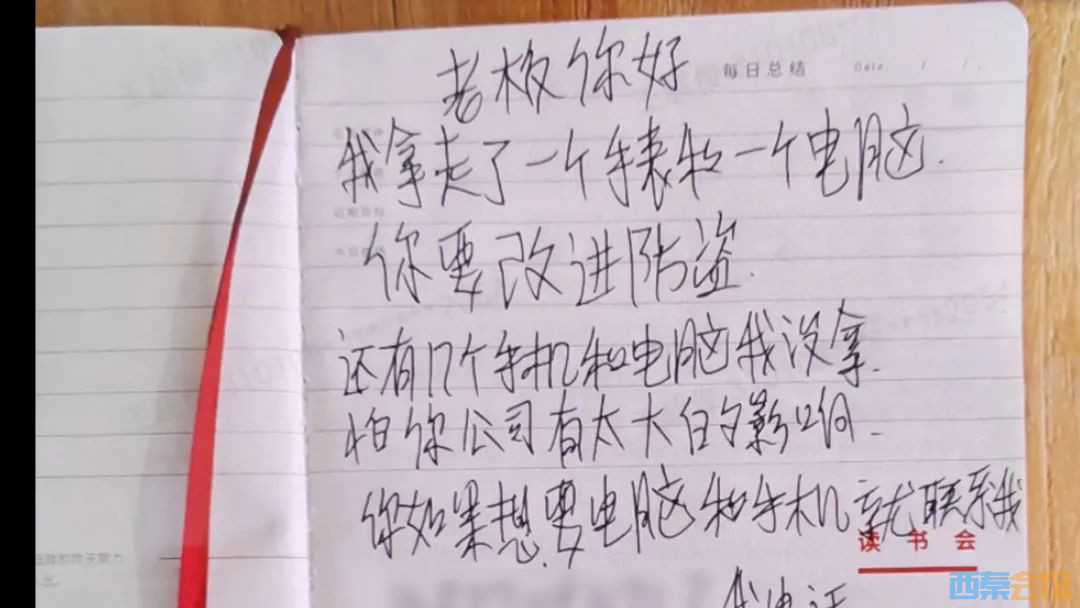 老板你好
每日总结 Date / /
我拿走了一个手表和一个电脑.
你要改进防盗.
还有几个手机和电脑我没拿.
怕你公司有太大的影响.
你如果想要电脑和手机就联系我
读书会
我电话